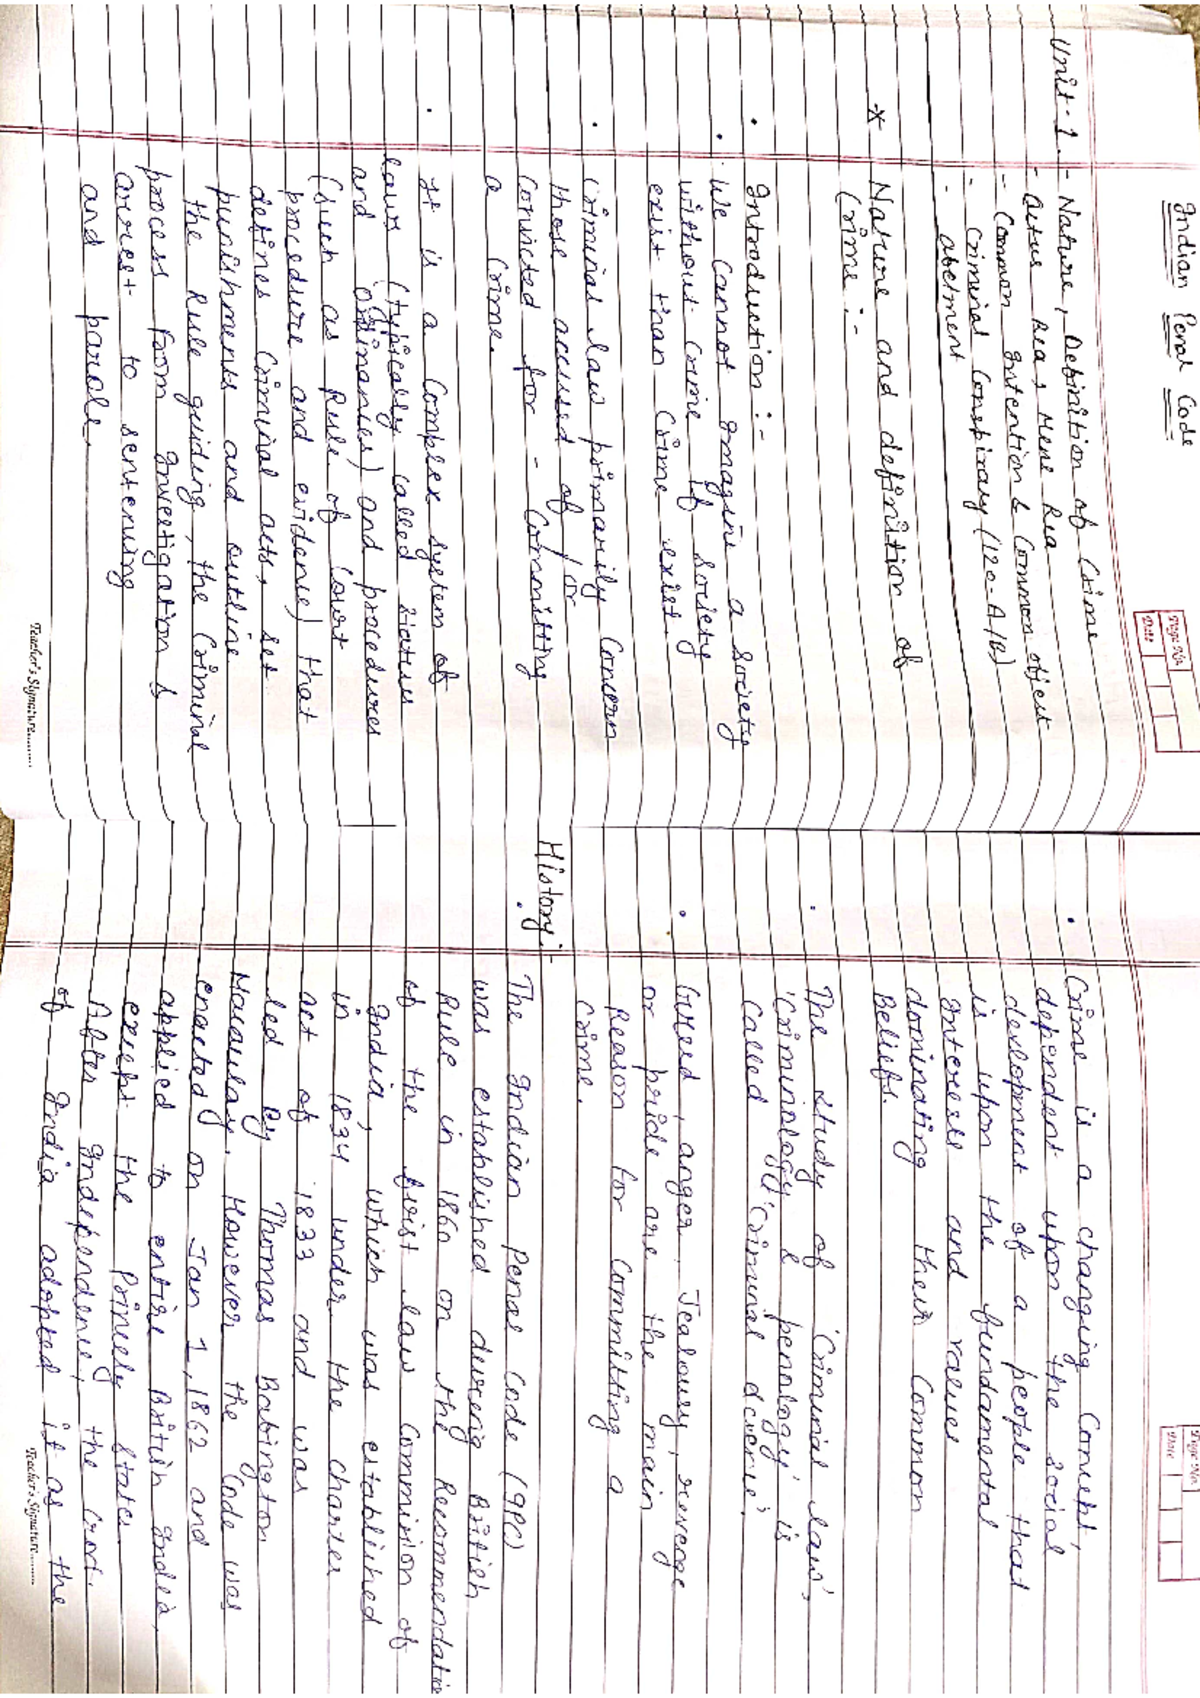 Indian Penal Code
Page No.
Date
Unit-1. - Nature, Definition of Crime
- Actus Rea, Mene Rea
- Common Intention & Common object
- Criminal Conspiracy (120-A/B)
- abetment
* Nature and definition of
Crime :-
• Introduction :-
• We cannot Imagine a society
without crime if society
exist than Crime exist.
• Criminal law primarily Concern
those accused of / or
Convicted for - Committing
a Crime.
• It is a Complex system of
laws (typically called status
and Ordinanies) and procedures
(such as Rule of Court
procedure and evidenie) that
defines Criminal acts, set
punishments and outline
the Rule guiding, the Criminal
process from Investigation &
arrest to sentensing
and parole.
Teacher's Signature..........
Page No.
Date
• Crime is a changing Concept,
dependent upon the social
devlopment of a people that
is upon the fundamental
Interests and values
dominating their Common
Beliefs.
• The study of 'Criminal law',
'Criminology & penology' is
called 'Criminal science'.
• Greed, anger, Jealousy, revenge
or pride are the main
Reason for Commiting a
Crime.
History :-
• The Indian Penal Code (IPC)
was established during British
Rule in 1860 on the Recommendatio
of the first law Commision of
India, which was established
in 1834 under the charter
act of 1833 and was
led By Thomas Babington
Macaulay. However the Code was
enacted on Jan 1, 1862 and
applied to entire British India,
except the Princely states.
After Independenie, the Govt.
of India adopted it as the
Teacher's Signature..........